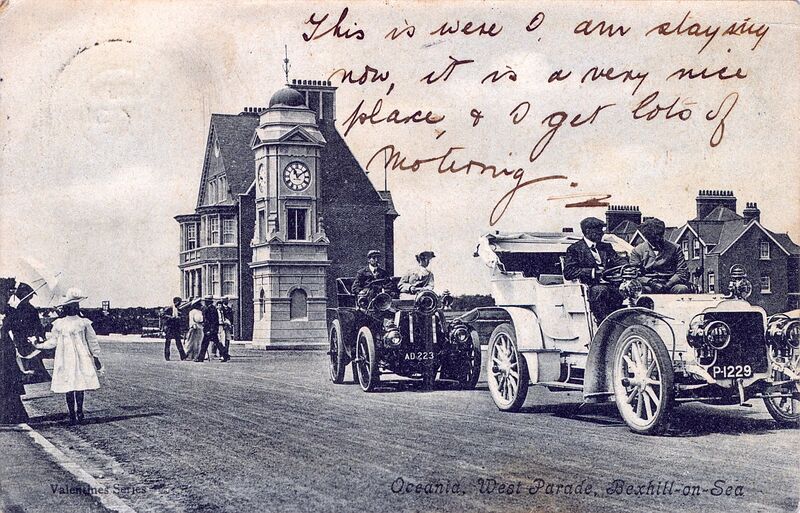 This is were I am staying
now, it is a very nice
place, & I get lots of
Motoring.
AD 223
P-1229
Valentines Series
Oceania, West Parade, Bexhill-on-Sea